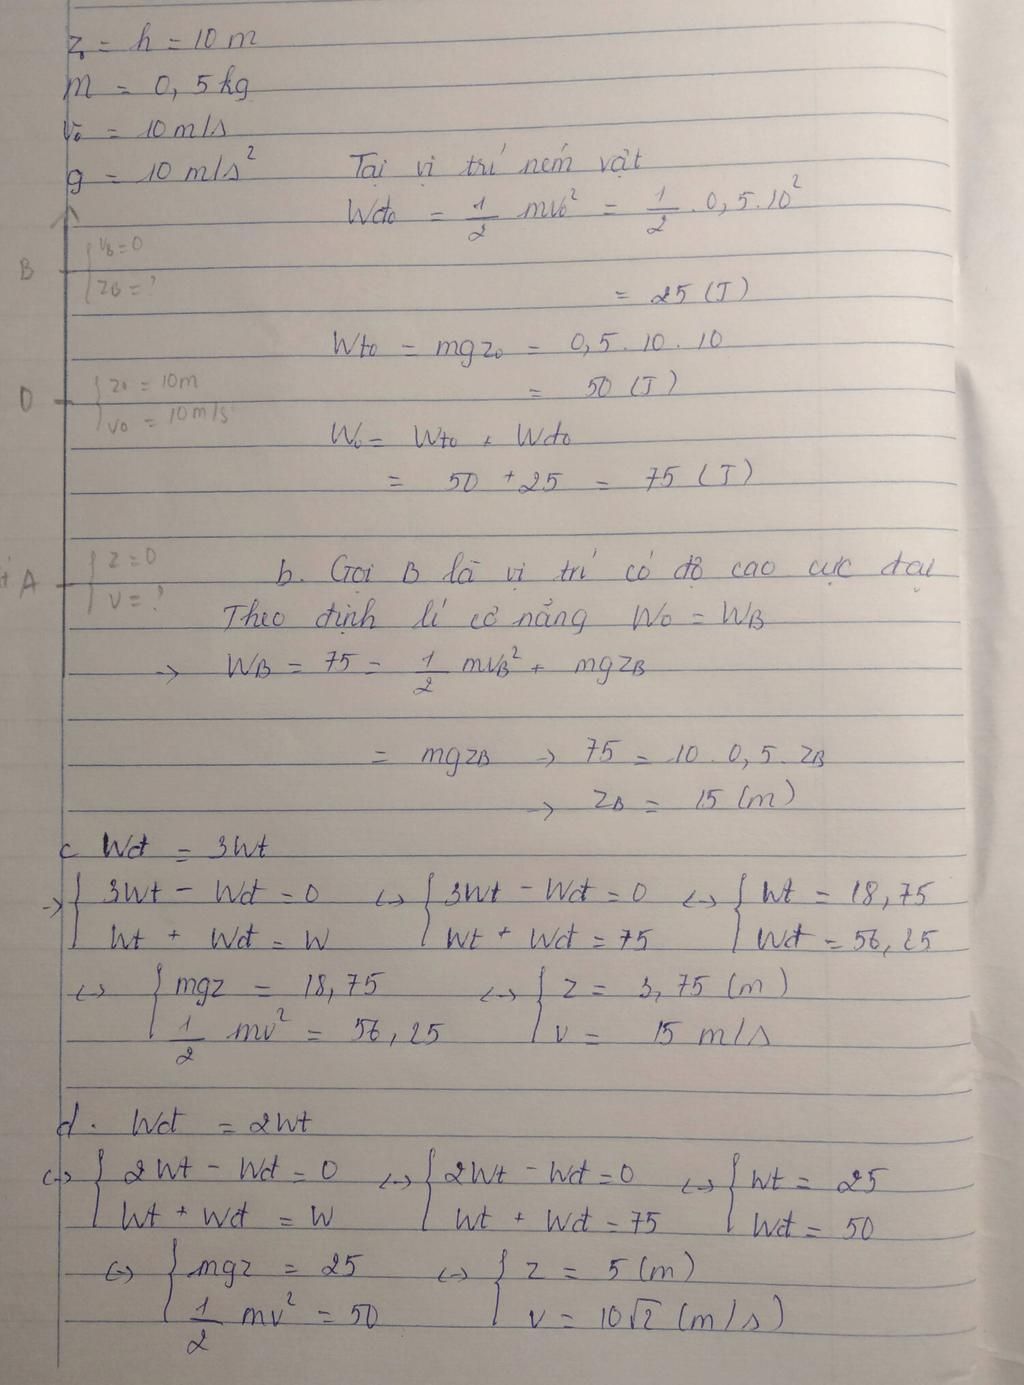 z = h = 10 m
m = 0,5 kg
v₀ = 10 m/s
g = 10 m/s²
Tại vị trí ném vật
Wđ₀ = 1/2 mv₀² = 1/2 . 0,5.10²
B { v_B = 0
z_B = ?
= 25 (J)
Wt₀ = mgz₀ = 0,5 . 10 . 10
= 50 (J)
O { z₀ = 10m
v₀ = 10 m/s
W₀ = Wt₀ + Wđ₀
= 50 + 25 = 75 (J)
A { z = 0
v = ?
b. Gọi B là vị trí có độ cao cực đại
Theo định lí cơ năng W₀ = W_B
→ W_B = 75 = 1/2 mv_B² + mgz_B
= mgz_B → 75 = 10 . 0,5 . z_B
→ z_B = 15 (m)
c Wđ = 3Wt
→ { 3Wt - Wđ = 0 ↔ { 3Wt - Wđ = 0 ↔ { Wt = 18,75
Wt + Wđ = W Wt + Wđ = 75 Wđ = 56,25
↔ { mgz = 18,75 ↔ { z = 3,75 (m)
1/2 mv² = 56,25 v = 15 m/s
d. Wđ = 2Wt
↔ { 2Wt - Wđ = 0 ↔ { 2Wt - Wđ = 0 ↔ { Wt = 25
Wt + Wđ = W Wt + Wđ = 75 Wđ = 50
↔ { mgz = 25 ↔ { z = 5 (m)
1/2 mv² = 50 v = 10√2 (m/s)